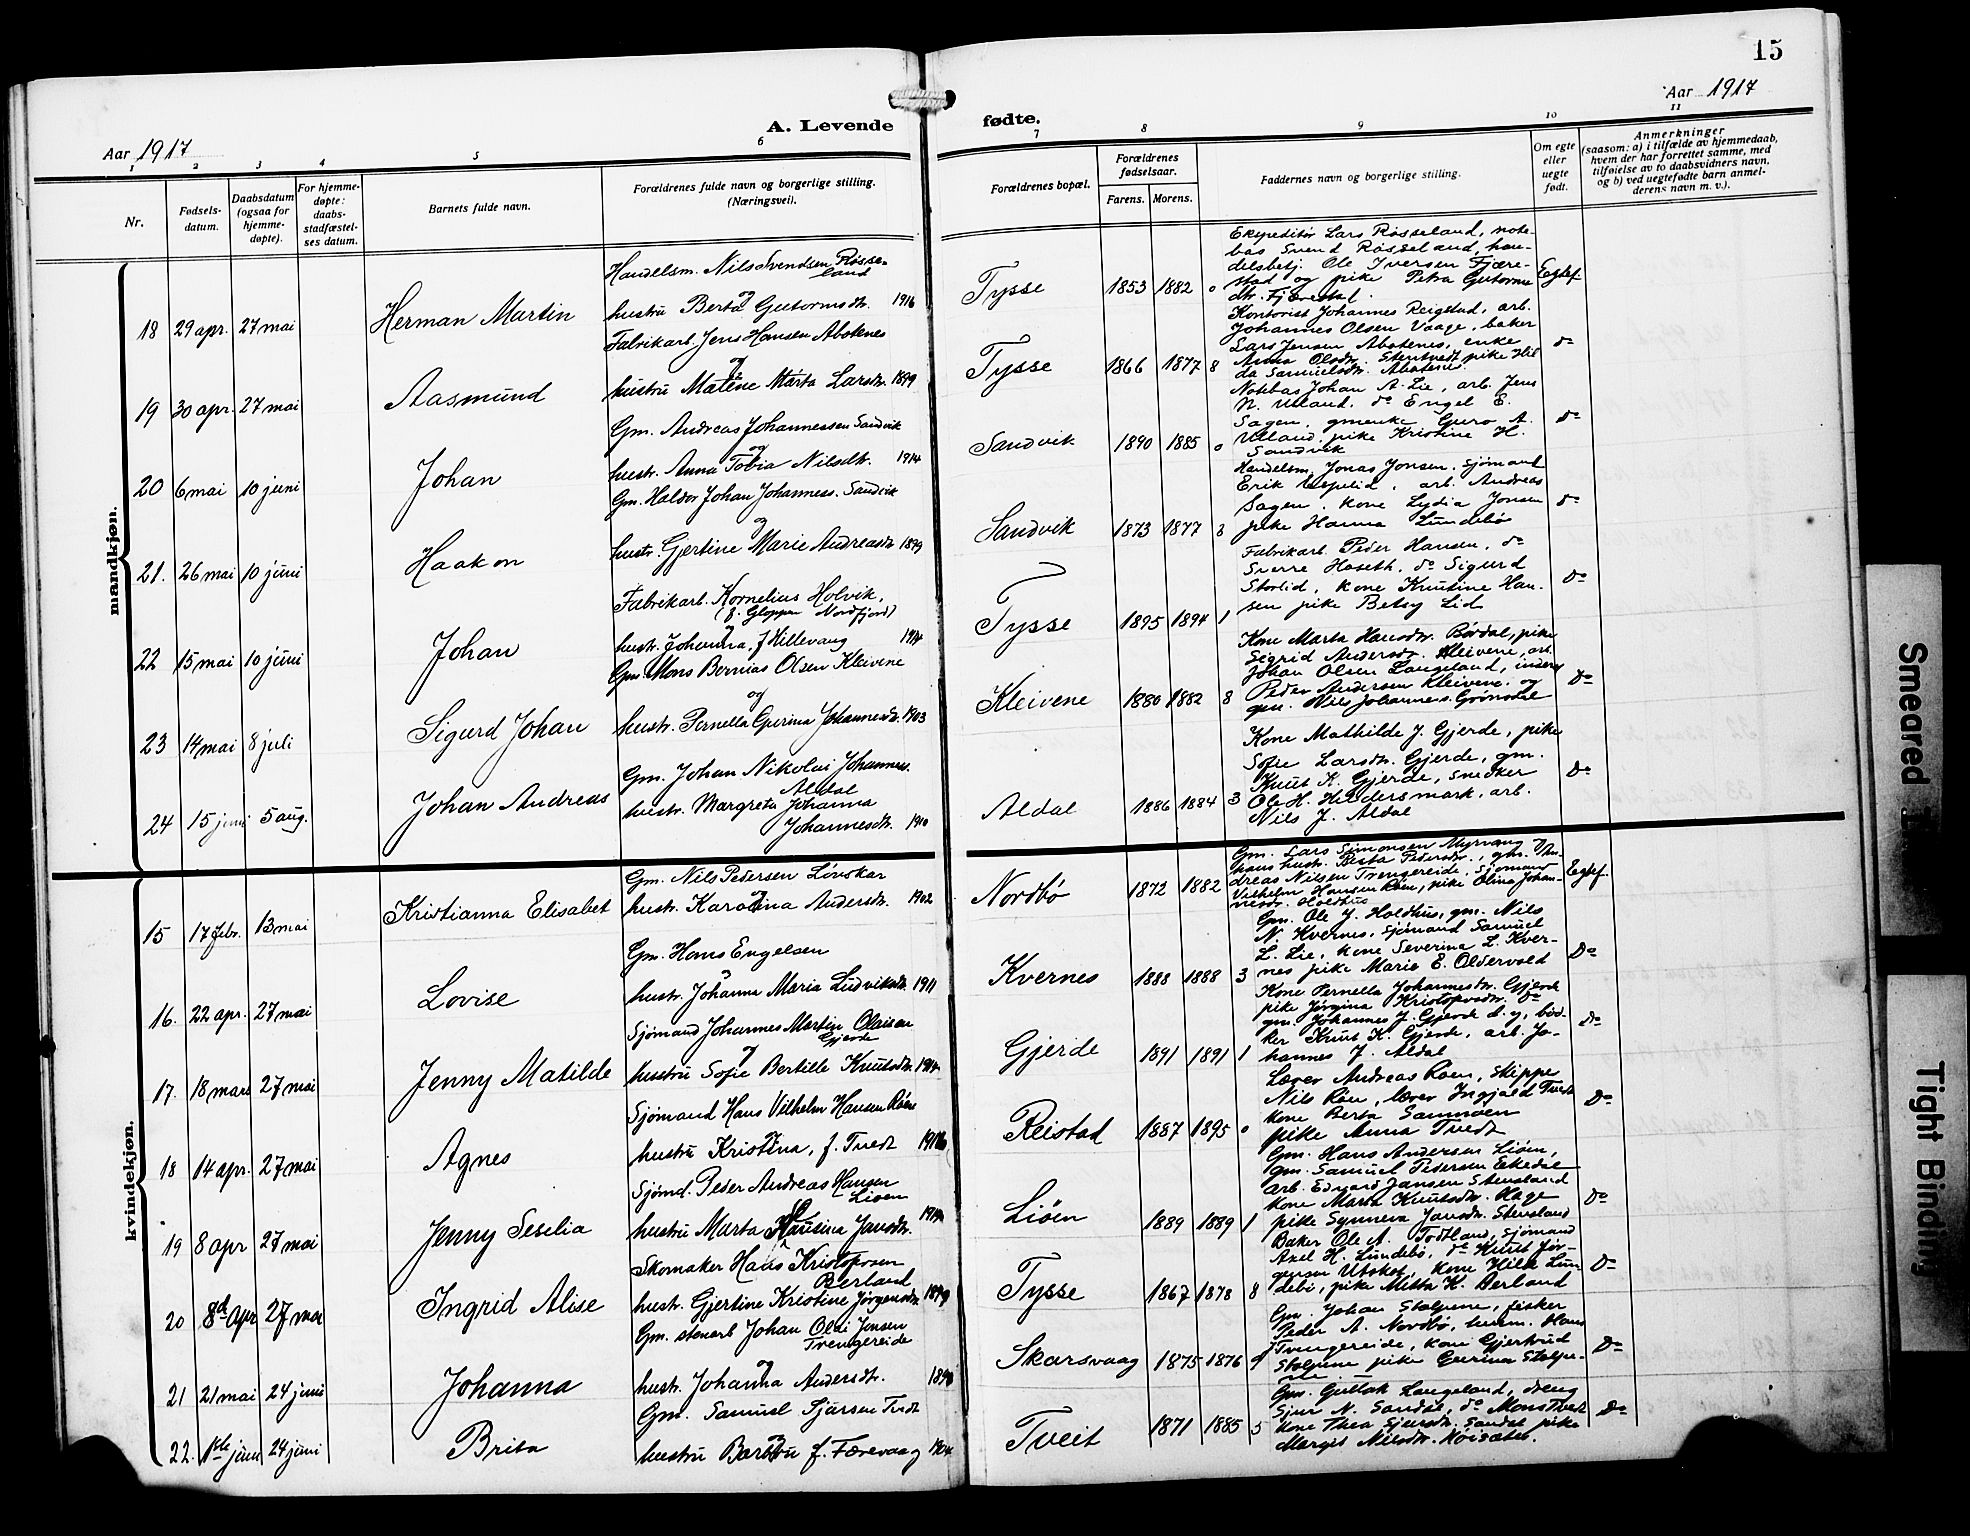 15
Aar 1917
A. Levende
fødte.
Aar 1917
1 2 3 4 5 6
7 8 9 10 11
Nr.
Fødsels-
datum.
Daabsdatum
(ogsaa for
hjemme-
døpte).
For hjemme-
døpte:
daabs-
stadfæstel-
ses datum.
Barnets fulde navn.
Forældrenes fulde navn og borgerlige stilling.
(Næringsvei).
Forældrenes bopæl.
Forældrenes
fødselsaar.
Farens. Morens.
Faddernes navn og borgerlige stilling.
Om egte
eller
uegte
født.
Anmerkninger
(saasom: a) i tilfælde av hjemmedaab,
hvem der har forrettet samme, med
tilføielse av to daabsvidners navn,
og b) ved uegtefødte barn anmel-
derens navn m. v.).
mandkjøn.
18 29 apr. 27 mai Herman Martin
Handelsm. Nils Svendsen Røsse-
land
og
hustru Berta Gutormsdtr. 1916
Tysse 1853 1882 0
Ekspeditør Lars Røsseland, note-
bas Svend Røsseland, han-
delsbetj. Ole Iversen Fjære-
stad og pike Petra Gutorms
dtr. Fjærestad.
Egtef.
19 30 apr. 27 mai Aasmund
Fabrikarb. Jens Hansen Abotenes
og
hustru Malene Marta Larsdtr. 1899
Tysse 1866 1877 8
Kontorist Johannes Reigstad, arb.
Johannes Olsen Vaage, baker
Lars Jensen Abotenes, enke
Anna Olsdtr. Stentvedt pike Hil
da Samuelsdtr. Abotenes
do
20 6 mai 10 juni Johan
Gm. Andreas Johannessen Sandvik
og
hustr. Anna Tobia Nilsdtr. 1914
Sandvik 1890 1885 0
Notebas Johan A. Lie, arb. Jens
N. Uland. do Engel E.
Sagen, gmenke Guro A.
Uland, pike Kristine H.
Sandvik
do
21. 26 mai 10 juni Haakon
Gm. Haldor Johan Johanness. Sandvik
og
hustr. Gjertine Marie Andreasdtr 1899
Sandvik 1873 1877 8
Handelsm. Jonas Jonsen. Sjømand
Erik Espelid, arb. Andreas
Sagen, kone Lydia Jonsen
pike Hanna Lundebø
do
22 15 mai 10 juni Johan
Fabrikarb. Kornelius Holvik,
(f. Gloppen Nordfjord)
og
hustr. Johanna, f Hillevang 1914
Tysse 1895 1894 1
Fabrikarb. Peder Hansen, do
Sverre Haseth, do Sigurd
Storlid, kone Knutine Han-
sen pike Betsy Lid
do
23 14 mai 8 juli Sigurd Johan
Gm. Mons Bernias Olsen Kleivene
og
hustr. Pernella Gurina Johannesdtr. 1903
Kleivene 1880 1882 8
Kone Marta Hansdtr. Børdal, pike
Sigrid Andersdtr. Kleivene, arb.
Johan Olsen Langeland, inderst
Peder Andersen Kleivene og
gm. Nils Johanness. Grønsdal
Do
24 15 juni 5 aug. Johan Andreas
Gm. Johan Nikolai Johanness.
Aldal
hustr. Margreta Johanna
Johannesdtr. 1910
Aldal 1886 1884 3
Kone Mathilde J. Gjerde, pike
Sofie Larsdtr. Gjerde, gm.
Knut K. Gjerde, snedker
Ole H. Hindersmark, arb.
Nils J. Aldal
Do
kvindekjøn.
15 17 febr. 13 mai Kristianna Elisabet
Gm. Nils Pedersen Lønskar
og
hustr. Karolina Andersdtr. 1902
Nordbø 1872 1882
Gm. Lars Simonsen Myrvang og
hans hustr. Berta Pedersdtr., gm. An-
dreas Nilsen Trengereide, sjømand
Vilhelm Hansen Røen, pike Olina Johan-
nesdtr. Holdhus
Egtef.
16. 22 apr. 27 mai Lovise
Gm. Hans Engelsen
og
hustr. Johanna Maria Ludviksdtr. 1911
Kvernes 1888 1888 3
Gm. Ole J. Holdhus, gm. Nils
N. Kvernes, sjømand Samuel
L. Lie, kone Severina L. Kver-
nes pike Marie E. Oldervold
Do
17. 18 mars 27 mai Jenny Matilde
Sjømand Johannes Martin Olaisen
Gjerde
og
hustru Sofie Bertille Knutsdtr. 1914
Gjerde 1891 1891 1
Kone Pernella Johannesdtr. Gjerde
pike Jørgina Kristofersdtr. do
gm. Johannes J. Gjerde d. y, bød-
ker Knut K. Gjerde, arb. Jo-
hannes J. Aldal
do
18 14 apr. 27 mai Agnes
Sjømand Hans Vilhelm Hansen Røen
og
hustru Kristina, f. Tvedt 1916
Reistad 1887 1895 0
Lærer Andreas Røen, skipper
Nils Røen, lærer Ingjald Tvedt
kone Berta Samnøen
pike Anna Tvedt
Do
19 8 apr 27 mai Jenny Seselia
Sjømd. Peder Andreas Hansen
Liøen
og
hustru Marta Knutsina Jansdtr. 1914
Liøen 1889 1889 1
Gm. Hans Andersen Liøen,
gm. Samuel Pedersen Eikedal
arb. Edvard Jansen Stensland
kone Marta Knutsdtr. Hage
pike Synneva Jansdtr. Stensland
Do
20 8de apr 27 mai Ingrid Alise
Skomaker Hans Kristofersen
Berland
hustr. Gjertine Kristine Jørgensdtr. 1899
Tysse 1867 1878 8
Baker Ole A. Todtland, sjømand
Axel H. Lundebø, do Knut Jør-
gensen Utskot, kone Hilda Lun
debø, pike Mitta K. Berland
Do
21 21 mai 24 juni Johanna
Gm. stenarb Johan Olai Jensen
Trengereide
og
hustr. Johanna Andersdtr. 1898
Skarsvaag 1875 1876 9
Gm. Johan Stolpene, fisker
Peder A. Nordbø, husm. Hans
Trengereide, kone Gjertrud
Stolpene pike Gurina Stolpe-
ne
Do
22. 1ste juni 24 juni Brita
Gm. Samuel Sjursen Tvedt
og
hustru Barbru f. Færevaag 1904
Tveit 1871 1885 5
Gm. Guttak Langeland, dreng
Sjur N. Sandal, do Mons Tveit
kone Thea Sjursdtr. Sandal pike
Margit Nilsdtr. Høisæter.
Do
Smeared
Tight Binding